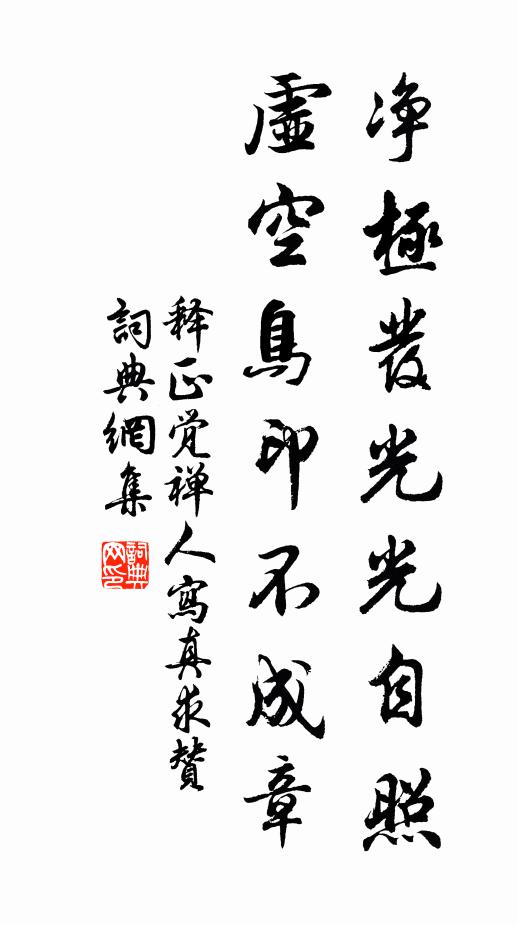 净極發光光自照
虛空鳥印不成章
释正覺禅人寫真求贊
詞典網集
詞典網印